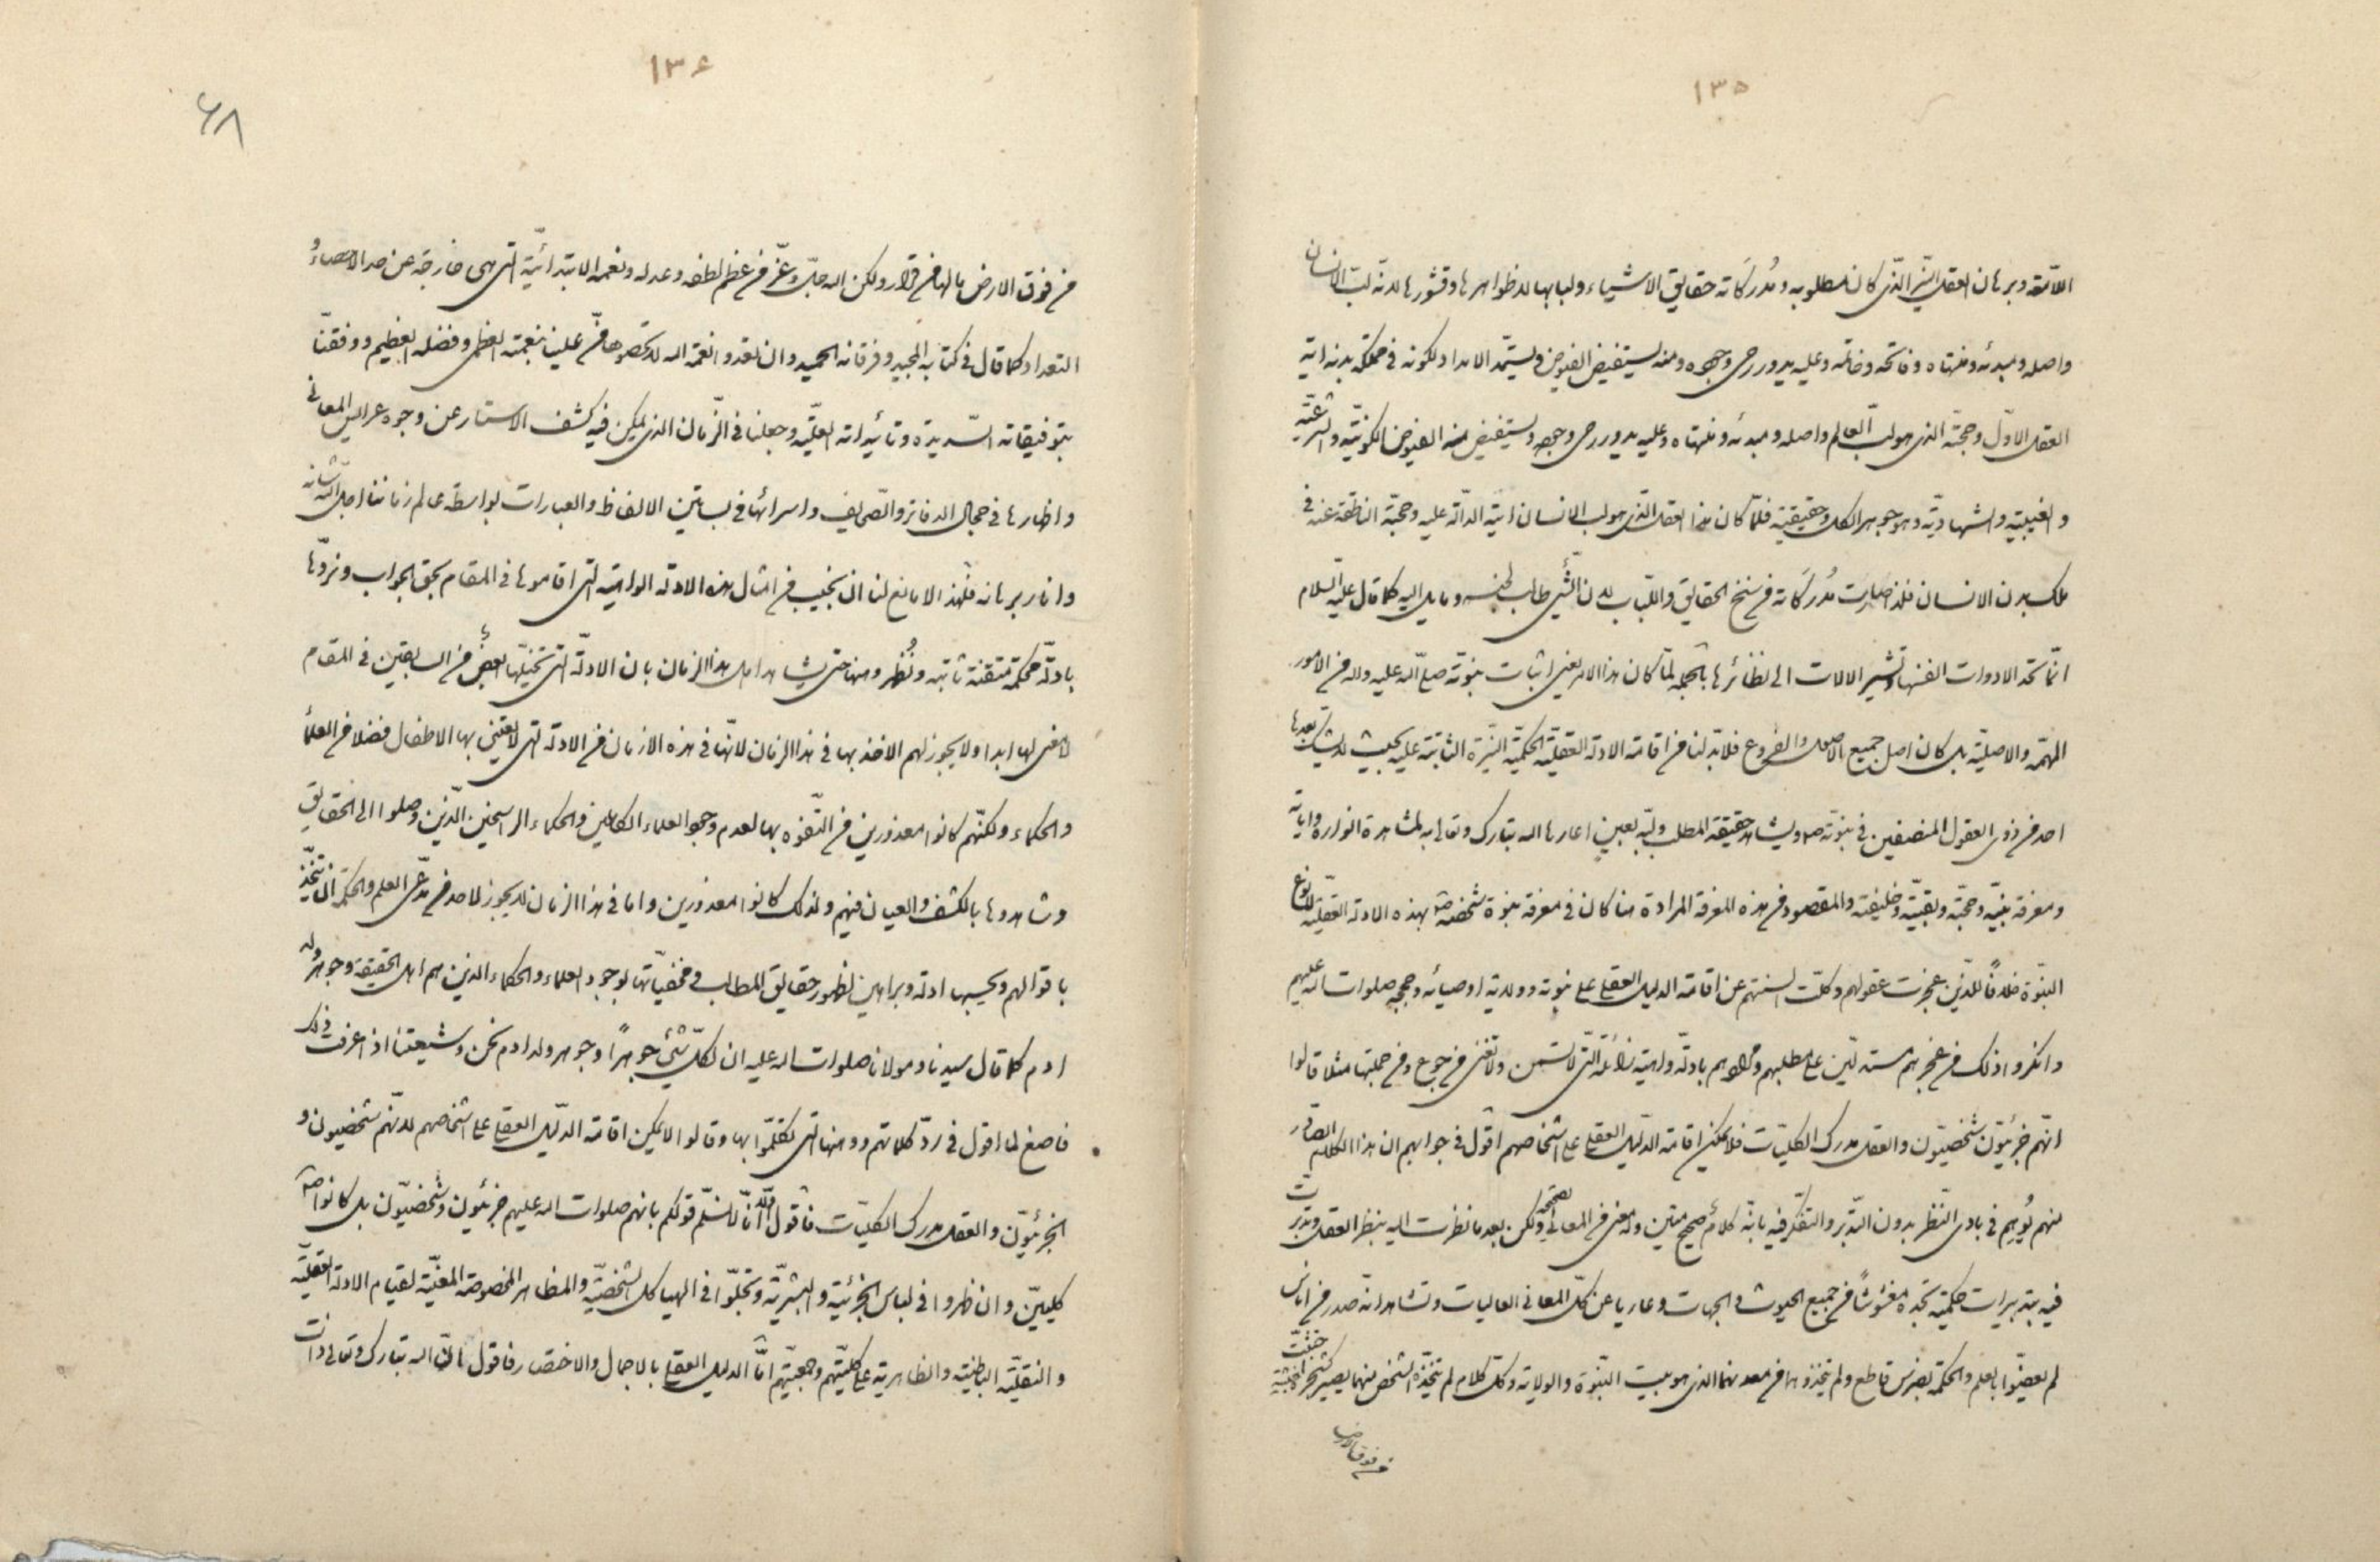 ۱۳۵
اللّامّة وبرهان العقل النیّر الّذی کان مطلوبه ومُدرَکاته حقایق الاشیاء ولبابها لا ظواهرها وقشورها لانّه لبّ الانسان
واصله ومبدئه ومنتهاه وفاتحه وخاتمه وعلیه یدور رحی وجوده ومنه یستفیض الفیوض ویستمدّ الامداد لکونه فی مملکة بدنه ایة
العقل الاوّل وحجّته الذی هو لبّ العالم واصله ومبدئه ومنتهاه وعلیه یدور رحی وجوده ویستفیض منه الفیوض الکونیّة والشرعیّة
والغیبیّة والشهادیّة وهو جوهر الکل وحقیقته فلمّا کان هذا العقل الّذی هو لب الانسان ایته الدالّة علیه وحجّته الناطقة عنه فی
ملک بدن الانسان فلذا صارت مُدرَکاته من سنخ الحقایق واللّباب لان الشّئ طالب لجنسه ومایل الیه کما قال علیه السّلام
انّما تحدّ الادوات انفسها وتشیر الالات الی نظائرها بالجمله لمّا کان هذا الامر یعنی اثبات نبوّته صلّی الله علیه واله من الامور
المهمّة والاصلیّة بل کان اصل جمیع الاصول والفروع فلابدّ لنا من اقامة الادلة العقلیّة الحکمیّة النیّرة الثابتة علیه بحیث لا یشکّ بعدها
احد من ذوی العقول المنصفین فی نبوّته ص ویشاهد حقیقة المطلب ولبّه بعین اعارها الله تبارک وتعالی به لمشاهدة انواره وایاته
ومعرفة نبیّه وحجّته وبقیّته وخلیفته والمقصود من هذه المعرفة المرادة هنا کان فی معرفة نبوة شخصه ص بهذه الادلة العقلیّة لا نوع
النبوّة خلافاً للّذین عجزت عقولهم وکلّت السنتهم عن اقامة الدلیل العقلی علی نبوته وولایة اوصیائه وحججه صلوات الله علیهم
وانکروا ذلک من عجزهم مستدلّین علی مطلبهم ومرادهم بادلّة واهیة زائفة الّتی لا تسمن ولا تغنی من جوع ومن جملتها مثلا قالوا
انّهم جزئیّون شخصیّون والعقل مدرک الکلیّات فلا یمکن اقامة الدلیل العقلی علی اشخاصهم اقول فی جوابهم ان هذا الکلام الصادر
منهم یُوهِم فی بادی النّظر بدون التدبّر والتفکّر فیه بانّه کلامٌ صحیح متین وله معنی من المعانی الصحیحة ولکن بعد ما نظرت الیه بنظر العقل وتدبّرت
فیه بتدبیرات حکمیّة تجده مغشوشاً من جمیع الحیوث والجهات وعاریا عن کلّ المعانی العالیات وتشاهد انّه صدر من اناس
لم یعضّوا بالعلم والحکمة بضرس قاطع ولم یتخذوهما من معدنهما الذی هو بیت النّبوة والولایة وکلّ کلام لم یتّخذه الشخص منهما یصیر کشجرة خبیثة اجتثّت
من فوق الارض
۱۳۶
۶۸
من فوق الارض مالها من قرار ولکن الله جلّ وعزّ من عظم لطفه وعدله ونعمه الابتدائیّة الّتی هی خارجة عن حد الاحصاء و
التعداد کما قال فی کتابه المجید وفرقانه الحمید وان تعدوا نعمة الله لا تحصوها منّ علینا بنعمته العظمی وفضله العظیم ووفقنا
بتوفیقاته السّدیدة وتائیداته العلیّة وجعلنا فی الزّمان الذی یمکن فیه کشف الاستار عن وجوه عرایس المعانی
واظهارها فی حجال الدفاتر والصّحایف واسرائها فی بساتین الالفاظ والعبارات بواسطة عالم زماننا اجلّ الله شانه
وانار برهانه فلهذا لا مانع لنا ان نجیب من امثال هذه الادلّة الواهیة الّتی اقاموها فی المقام بحق الجواب ونردّها
بادلّة محکمة متقنة ثابتة ونُظهر وهنها حتی یشاهد اهل هذا الزمان بان الادلّة الّتی تخیّلها بعضٌ من السابقین فی المقام
لا معنی لها ابدا ولا یجوز لهم الاخذ بها فی هذا الزمان لانّها فی هذه الازمان من الادلة الّتی لا یعتنی بها الاطفال فضلا من العلماء
والحکماء ولکنّهم کانوا معذورین من التّفوّه بها لعدم وجود العلماء الکاملین والحکماء الراسخین الّذین وصلوا الی الحقایق
وشاهدوها بالکشف والعیان فیهم ولذلک کانوا معذورین واما فی هذا الزمان لا یجوز لاحد من مدّعی العلم والحکمة ان یتخّذ
باقوالهم ویحسبها ادلة وبراهین لظهور حقایق المطالب ومخفیّاتها بوجود العلماء والحکماء الذین هم اهل الحقیقة وجوهر ولد
ادم کما قال سیدنا ومولانا صلوات الله علیه ان لکلّ شئ جوهراً وجوهر ولد ادم نحن وشیعتنا اذا عرفت ذلک
فاصغ لما اقول فی ردّ کلماتهم ووهنها الّتی تکلّموا بها وقالوا لا یمکن اقامة الدلیل العقلی علی اشخاصهم لانّهم شخصیون و
الجزئیّون والعقل مدرک الکلیّات فاقول اوّلا انّا لا نسلّم قولکم بانهم صلوات الله علیهم جزئیّون وشخصیّون بل کانوا ص
کلیین وان ظهروا فی لباس الجزئیّة والبشریّة وتجلّوا فی الهیاکل الشخصیّة والمظاهر المخصوصة المعیّنة لقیام الادلة العقلیّة
والنقلیّة الباطنیّة والظاهریة علی کلیّتهم وحجیّتهم امّا الدلیل العقلی بالاجمال والاختصار فاقول بان الله تبارک وتعالی ذات